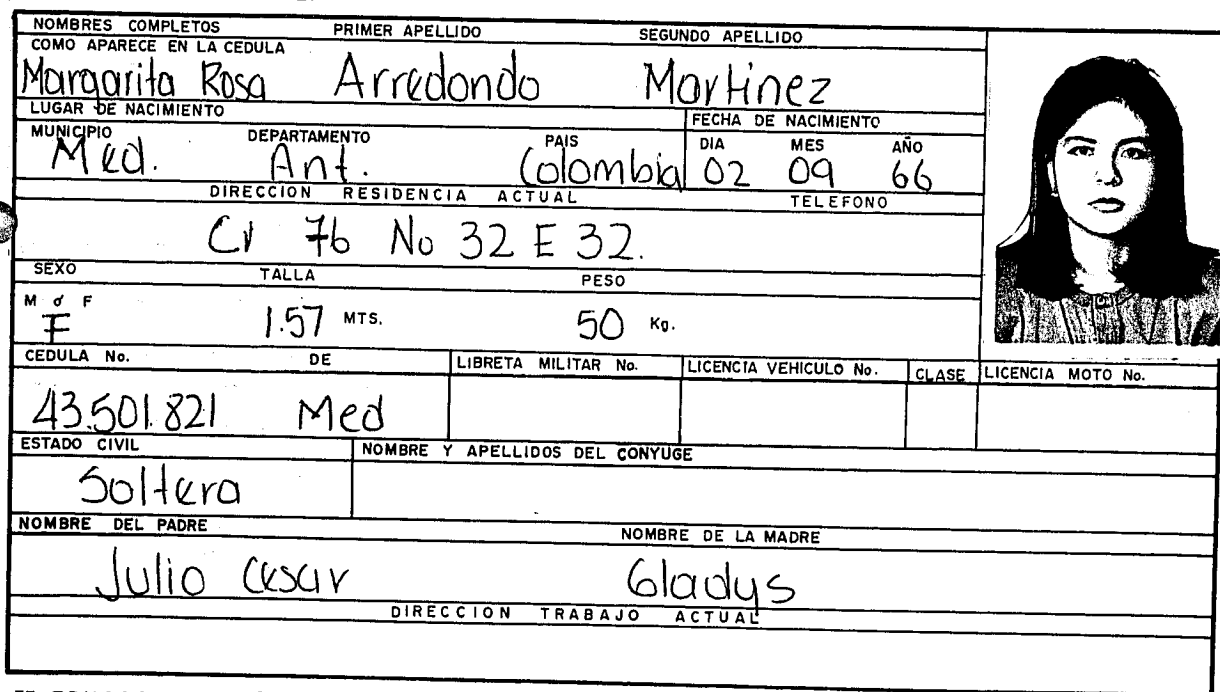 NOMBRES COMPLETOS PRIMER APELLIDO SEGUNDO APELLIDO
COMO APARECE EN LA CEDULA
Margarita Rosa Arredondo Martinez
LUGAR DE NACIMIENTO FECHA DE NACIMIENTO
MUNICIPIO DEPARTAMENTO PAIS DIA MES AÑO
Med. Ant. Colombia 02 09 66
DIRECCION RESIDENCIA ACTUAL TELEFONO
Cr 76 No 32 E 32.
SEXO TALLA PESO
M ó F
F 1.57 MTS. 50 Kg.
CEDULA No. DE LIBRETA MILITAR No. LICENCIA VEHICULO No. CLASE LICENCIA MOTO No.
43.501.821 Med
ESTADO CIVIL NOMBRE Y APELLIDOS DEL CONYUGE
Soltera
NOMBRE DEL PADRE NOMBRE DE LA MADRE
Julio Cesar Gladys
DIRECCION TRABAJO ACTUAL